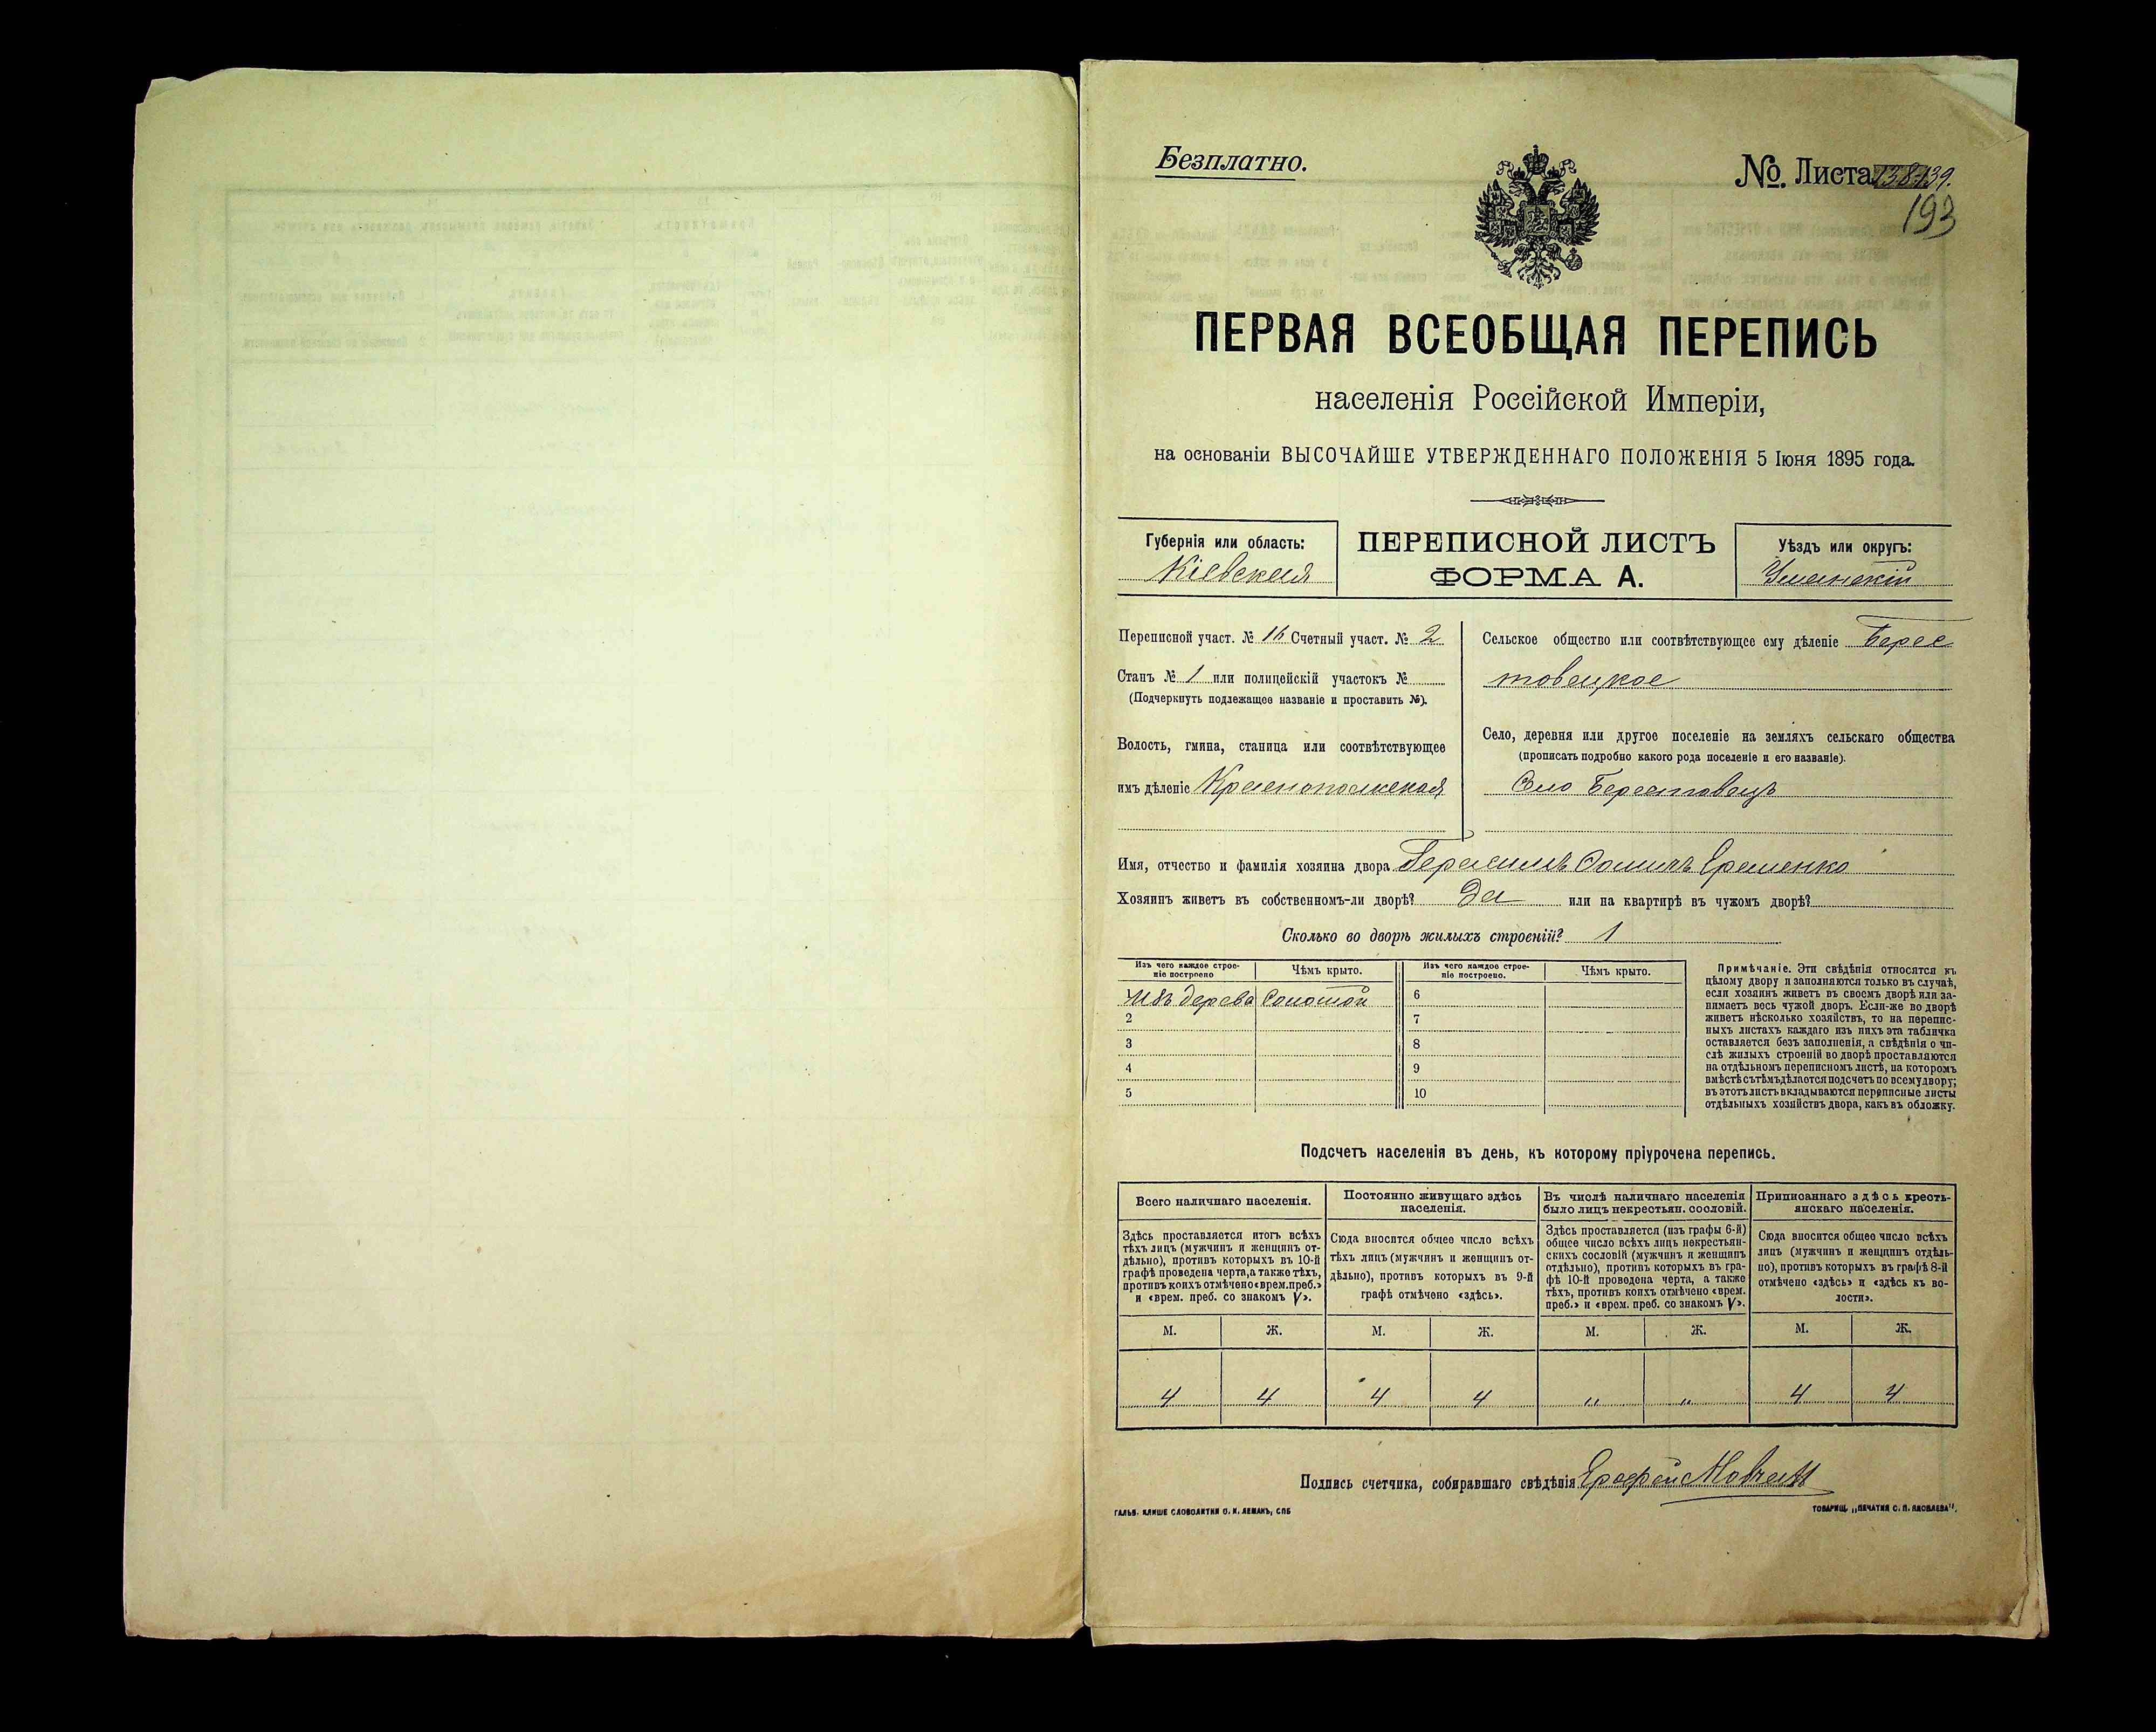 Безплатно.
№. Листа 138 139.
193
ПЕРВАЯ ВСЕОБЩАЯ ПЕРЕПИСЬ
населенія Россійской Имперіи,
на основаніи ВЫСОЧАЙШЕ УТВЕРЖДЕННАГО ПОЛОЖЕНІЯ 5 Іюня 1895 года.
Губернія или область:
Кіевская
ПЕРЕПИСНОЙ ЛИСТЪ
ФОРМА А.
Уѣздъ или округъ:
Уманскій
Переписной участ. № 16 Счетный участ. № 2
Станъ № 1 или полицейскій участокъ №
(Подчеркнуть подлежащее названіе и проставить №).
Волость, гмина, станица или соотвѣтствующее
имъ дѣленіе Краснопольская
Сельское общество или соотвѣтствующее ему дѣленіе Берес
товецкое
Село, деревня или другое поселеніе на земляхъ сельскаго общества
(прописать подробно какого рода поселеніе и его названіе).
Село Берестовецъ
Имя, отчество и фамилія хозяина двора Герасимъ Фомичъ Еременко
Хозяинъ живетъ въ собственномъ-ли дворѣ? Да или на квартирѣ въ чужомъ дворѣ?
Сколько во дворѣ жилыхъ строеній? 1
Изъ чего каждое строе-
ніе построено
Чѣмъ крыто.
Изъ чего каждое строе-
ніе построено.
Чѣмъ крыто.
1 изъ дерева Соломой 6
2 7
3 8
4 9
5 10
Примѣчаніе. Эти свѣдѣнія относятся къ
цѣлому двору и заполняются только въ случаѣ,
если хозяинъ живетъ въ своемъ дворѣ или за-
нимаетъ весь чужой дворъ. Если-же во дворѣ
живетъ нѣсколько хозяйствъ, то на перепис-
ныхъ листахъ каждаго изъ нихъ эта табличка
оставляется безъ заполненія, а свѣдѣнія о чи-
слѣ жилыхъ строеній во дворѣ проставляются
на отдѣльномъ переписномъ листѣ, на которомъ
вмѣстѣ съ тѣмъ дѣлается подсчетъ по всему двору;
въ этотъ листъ вкладываются переписные листы
отдѣльныхъ хозяйствъ двора, какъ въ обложку.
Подсчетъ населенія въ день, къ которому пріурочена перепись.
Всего наличнаго населенія.
Здѣсь проставляется итогъ всѣхъ
тѣхъ лицъ (мужчинъ и женщинъ от-
дѣльно), противъ которыхъ въ 10-й
графѣ проведена черта, а также тѣхъ,
противъ коихъ отмѣчено «врем. преб.»
и «врем. преб. со знакомъ V».
Постоянно живущаго здѣсь
населенія.
Сюда вносится общее число всѣхъ
тѣхъ лицъ (мужчинъ и женщинъ от-
дѣльно), противъ которыхъ въ 9-й
графѣ отмѣчено «здѣсь».
Въ числѣ наличнаго населенія
было лицъ некрестьян. сословій.
Здѣсь проставляется (изъ графы 6-й)
общее число всѣхъ лицъ некрестьян-
скихъ сословій (мужчинъ и женщинъ
отдѣльно), противъ которыхъ въ гра-
фѣ 10-й проведена черта, а также
тѣхъ, противъ коихъ отмѣчено «врем.
преб.» и «врем. преб. со знакомъ V».
Приписаннаго здѣсь кресть-
янскаго населенія.
Сюда вносится общее число всѣхъ
лицъ (мужчинъ и женщинъ отдѣль-
но), противъ которыхъ въ графѣ 8-й
отмѣчено «здѣсь» и «здѣсь къ во-
лости».
М. Ж. М. Ж. М. Ж. М. Ж.
4 4 4 4 " " 4 4
Подпись счетчика, собиравшаго свѣдѣнія Ерофей Мовчан
ГАЛЬВ. КЛИШЕ СЛОВОЛИТНИ О. И. ЛЕМАНЪ, СПБ
ТОВАРИЩ. „ПЕЧАТНЯ С. П. ЯКОВЛЕВА".